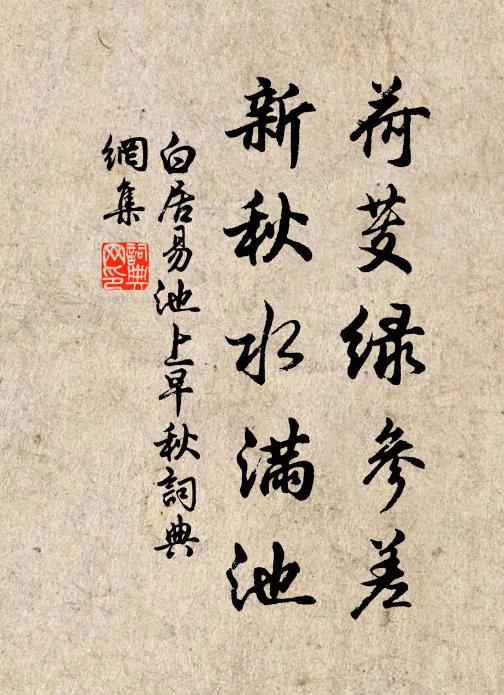 荷芰绿参差
新秋水满池
白居易池上早秋詞典
網集
詞典
网印